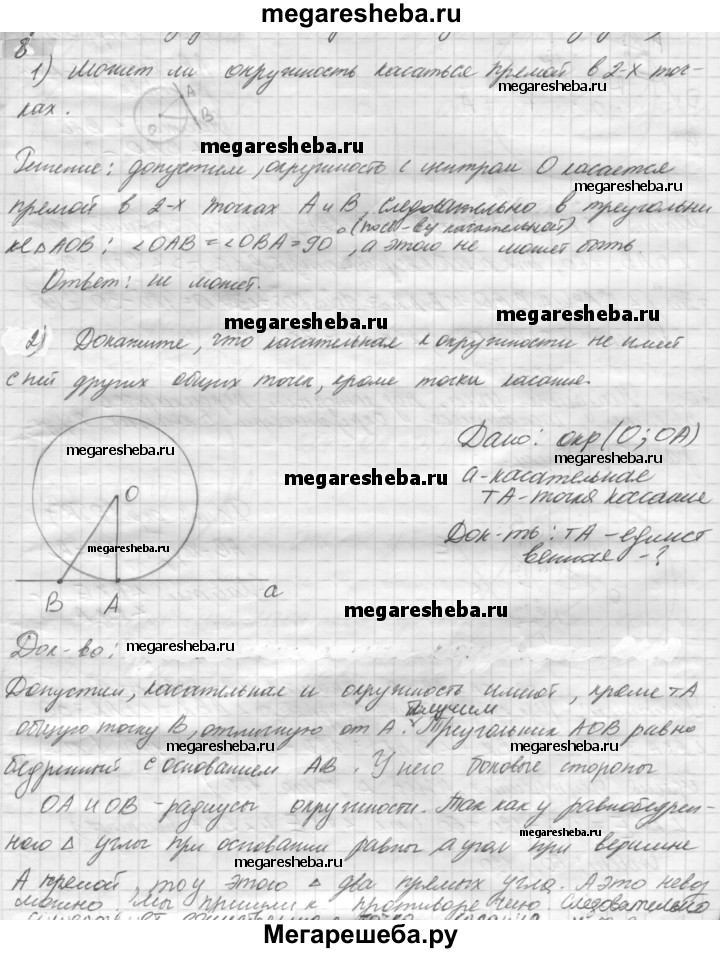 megaresheba.ru
8
1) Может ли окружность касаться прямой в 2-х точ-
ках.
A
O
B
megaresheba.ru
Решение: допустим, окружность с центром О касается
megaresheba.ru
прямой в 2-х точках А и В, следовательно в треугольни
ке △AOB: ∠OAB = ∠OBA = 90° (по св-ву касательной), а этого не может быть.
Ответ: не может.
megaresheba.ru
megaresheba.ru
2) Докажите, что касательная к окружности не имеет
с ней других общих точек, кроме точки касание.
megaresheba.ru
Дано: окр (O; OA)
a - касательная
megaresheba.ru
тА - точка касание
O
Док-ть: тА - единст
венная - ?
megaresheba.ru
B A a
megaresheba.ru
Док-во:
megaresheba.ru
Допустим, касательная и окружность имеют, кроме тА
общую точку В, отличную от А. Получим Треугольник АОВ равно
megaresheba.ru
бедренный с основанием АВ. У него боковые стороны
ОА и ОВ - радиусы окружности. Так как у равнобедрен-
megaresheba.ru
ного △ углы при основании равны, а угол при вершине
megaresheba.ru
А прямой, то у этого △ два прямых угла. А это невоз
megaresheba.ru
можно. Мы пришли к противоречию. Следовательно
Мегарешеба.ру